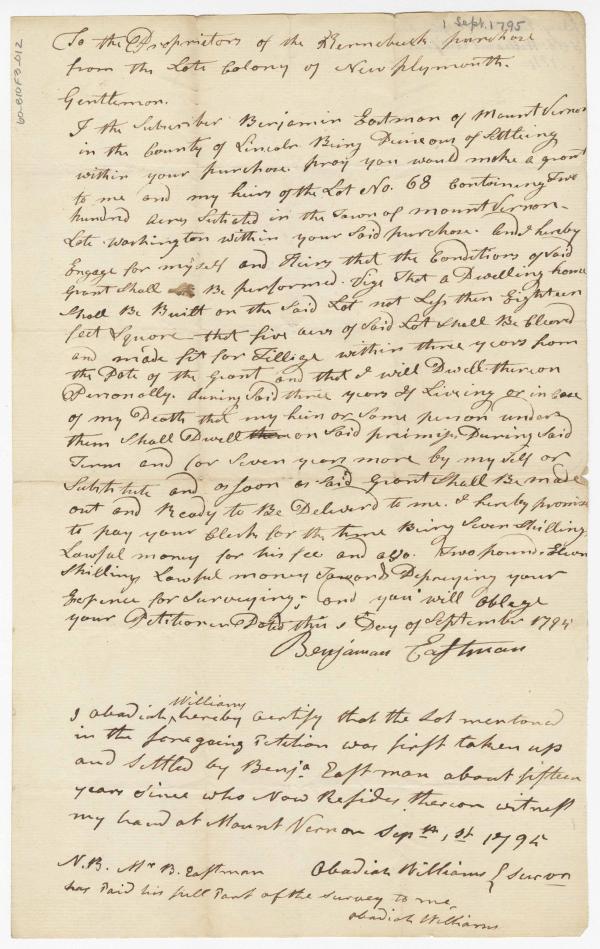 1 Sept. 1795
60-810F3-012
To the Proprietors of the Kennebeck purchase
from the Late Colony of New plymouth.
Gentlemen.
I the Subscriber Benjamin Eastman of Mount Vernon
in the County of Lincoln Being Desireous of Settleing
within your purchase. pray you would make a grant
to me and my heirs of the Lot No. 68 Containing Two
hundred acres Setuated in the Town of mount Vernon-
Late Washington within your Said purchase. and I hereby
Engage for myself and Heirs that the Conditions of Said
Grant Shall Be performed. Vize That a Dwelling house
Shall Be Built on the Said Lot not Less then Eighteen
feet Square - that five acres of Said Lot Shall Be Cleard
and made fit for Tillige within three years from
the Date of the Grant and that I will Dwell thereon
Personally. during Said three years If Liveing or in Case
of my Death that my heir or Some person under
them Shall Dwell on Said primises During Said
Term and for Seven years more by my Self or
Substitute and as soon as Said Grant Shall Be made
out and Ready to Be Deliverd to me. I hereby promise
to pay your Clerk for the time Being Seven Shillings
Lawful money for his fee and also. Two pounds Eleven
Shillings Lawful money Towards Defraying your
Expence for Surveying; and you will oblege
your Petitioner Dated this 1st Day of September 1795
Benjaman Eastman
I obadiah Williams hereby Certify that the Lot mentoned
in the foregoing Petition was first taken up
and settled by Benja. Eastman about fifteen
years Since who Now Resides thereon witness
my hand at Mount Vernon Sept. 1st 1795
N.B. Mr B. Eastman Obadiah Williams
has Paid his full Part of the Survey to me
obadiah Williams